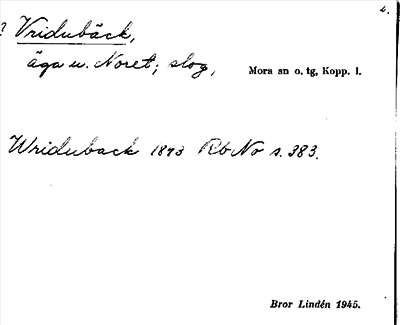 4.
? Vridubäck,
äga u. Noret; slog, Mora sn o. tg, Kopp. l.
Wriduback 1873 RbNo s. 383.
Bror Lindén 1945.